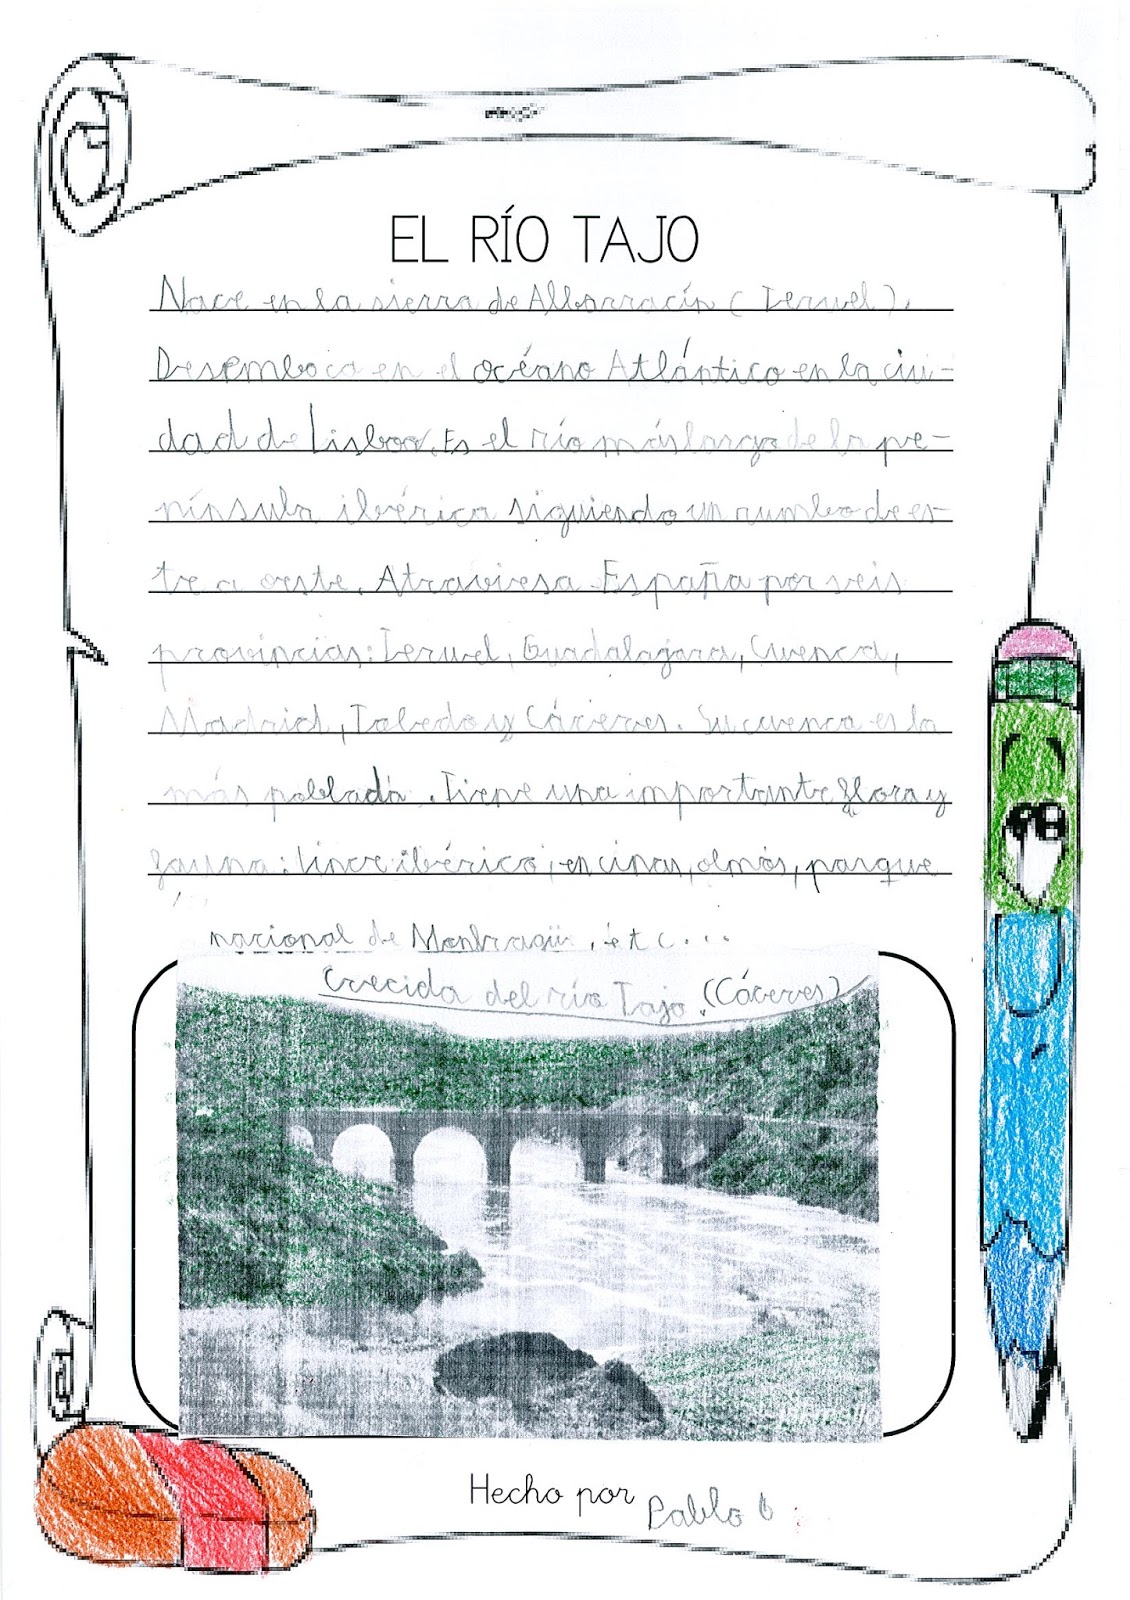 EL RÍO TAJO
Nace en la sierra de Albarracín (Teruel).
Desemboca en el océano Atlántico en la ciu-
dad de Lisboa. Es el río más largo de la pe-
nínsula ibérica siguiendo un rumbo de es-
te a oeste. Atraviesa España por seis
provincias: Teruel, Guadalajara, Cuenca,
Madrid, Toledo y Cáceres. Su cuenca es la
más poblada. Tiene una importante flora y
fauna: lince ibérico, encinas, olmos, parque
nacional de Monfragüe, etc...
Crecida del río Tajo (Cáceres)
Hecho por Pablo